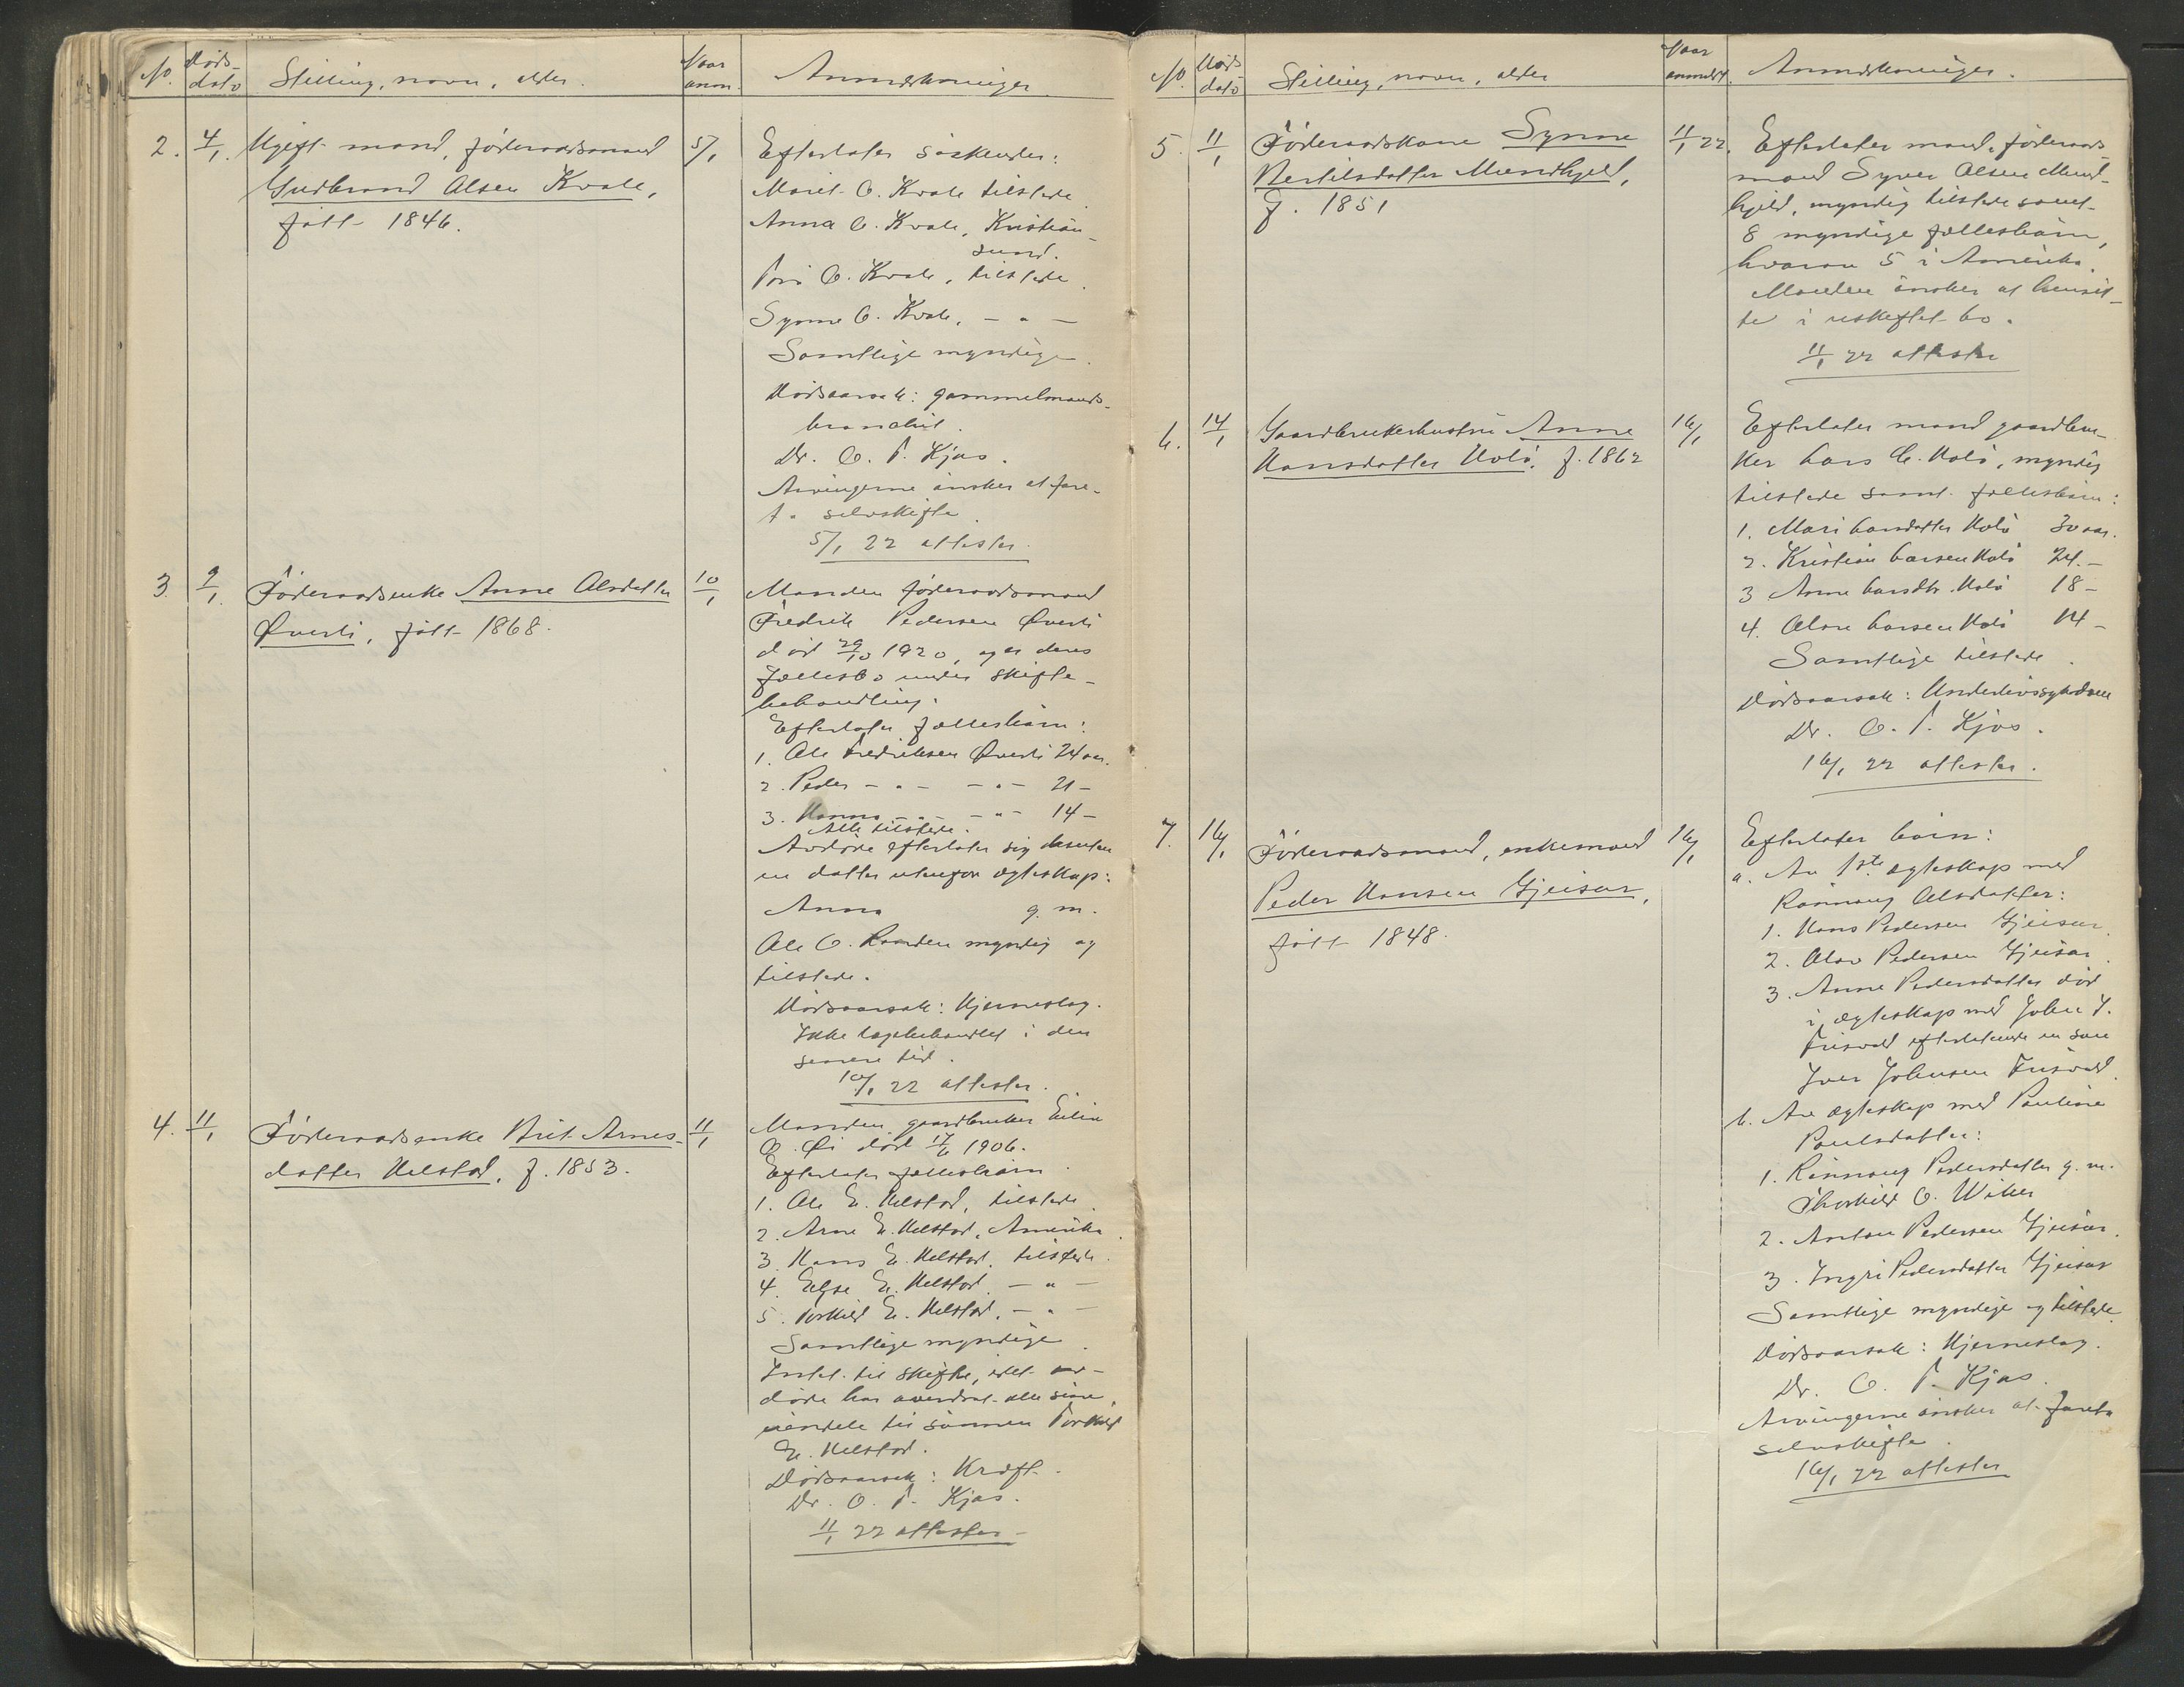 No. Døds-dato Stilling, navn, alder. Naar anm. Anmerkninger
2. 4/1. Ugift mand, föderaadsmand 5/1
Gudbrand Olsen Kvale,
född 1846.
Efterlater söskender:
Marit O. Kvale tilstede
Anna O. Kvale, Kristian-
sund.
O. Kvale, tilstede
Synne O. Kvale, - " -
Samtlige myndige.
Dödsaarsak: gammelmands-
brand.
Dr. O. T. Kjos.
Arvingerne önsker at fore-
ta selvskifte.
5/1 22 attester.
3. 9/1. Föderaadsenke Anne Olsdatter 10/1
Øverli, född 1868.
Manden föderaadsmand
Fredrik Pedersen Øverli
död 29/10 1920, og er deres
fællesbo under skifte-
behandling.
Efterlater fællesbörn:
1. Ole Fredriksen Øverli 24 aar.
2. Peder - " - - " - 21 -
3. Hanna - " - - " - 14 -
Alle tilstede.
Avdöde efterlater sig desuten
en datter utenfor ægteskap:
Anna g. m.
Ole O. Randen myndig og
tilstede.
Dödsaarsak: Hjerneslag.
Ikke lægebehandlet i den
senere tid.
10/1 22 attester.
4. 11/1 Föderaadsenke Brit Arnes- 11/1
datter Helstad, f. 1853.
Manden gaardbruker Eilin
O. Öi död 17/6 1906.
Efterlater fællesbörn
1. Ole E. Helstad, tilstede
2. Arne E. Helstad, Amerika.
3. Hans E. Helstad, tilstede.
4. E. Helstad - " -
5. Torkild E. Helstad, - " -
Samtlige myndige.
Intet til skifte, idet av-
döde har avendret alle sine
eiendele til sönnen Torkild
E. Helstad.
Dödsaarsak: Kræft.
Dr. O. T. Kjos.
11/1 22 attester
No. Døds dato Stilling, navn, alder Naar anmeldt. Anmerkninger.
5. 11/1 Föderaadskone Synne 11/1 22.
Bertilsdatter Mundhjeld,
f. 1851
Efterlater mand, föderaads-
mand Syver Olsen Mund-
hjeld, myndig tilstede samt
8 myndige fællesbörn,
hvorav 5 i Amerika.
Manden önsker at hensit-
te i uskiftet bo.
11/1 22 attester
6. 14/1 Gaardbrukerhustru Anne 16/1
Hansdatter Holö. f. 1862
Efterlater mand gaardbru-
ker Lars C. Holö, myndig
tilstede samt fællesbörn:
1. Mari Larsdatter Holö 30 aar.
2. Kristian Larsen Holö 24. -
3 Anne Larsdtr. Holö 18 -
4. Olav Larsen Holö 14 -
Samtlige tilstede.
Dödsaarsak: Underlivssygdom
Dr. O. T. Kjos.
16/1 22 attester.
7. 16/1 Föderaadsmand, enkemand 16/1
Peder Hansen Gjeisar,
född 1848.
Efterlater börn:
a. Av 1ste ægteskap med
Rönnaug Olsdatter:
1. Hans Pedersen Gjeisar.
2. Olav Pedersen Gjeisar.
3. Anne Pedersdatter död
i ægteskap med Johan J.
Frisvold efterlatende en sön
Iver Johansen Frisvold.
b. Av ægteskap med Pauline
Paulsdatter:
1. Rönnaug Pedersdatter g. m.
Thorkild O. Wiker
2. Anton Pedersen Gjeisar.
3. Ingri Pedersdatter Gjeisar
Samtlige myndige og tilstede.
Dödsaarsak: Hjerneslag.
Dr. O. T. Kjos.
Arvingerne önsker at foreta
selvskifte.
16/1 22 attester